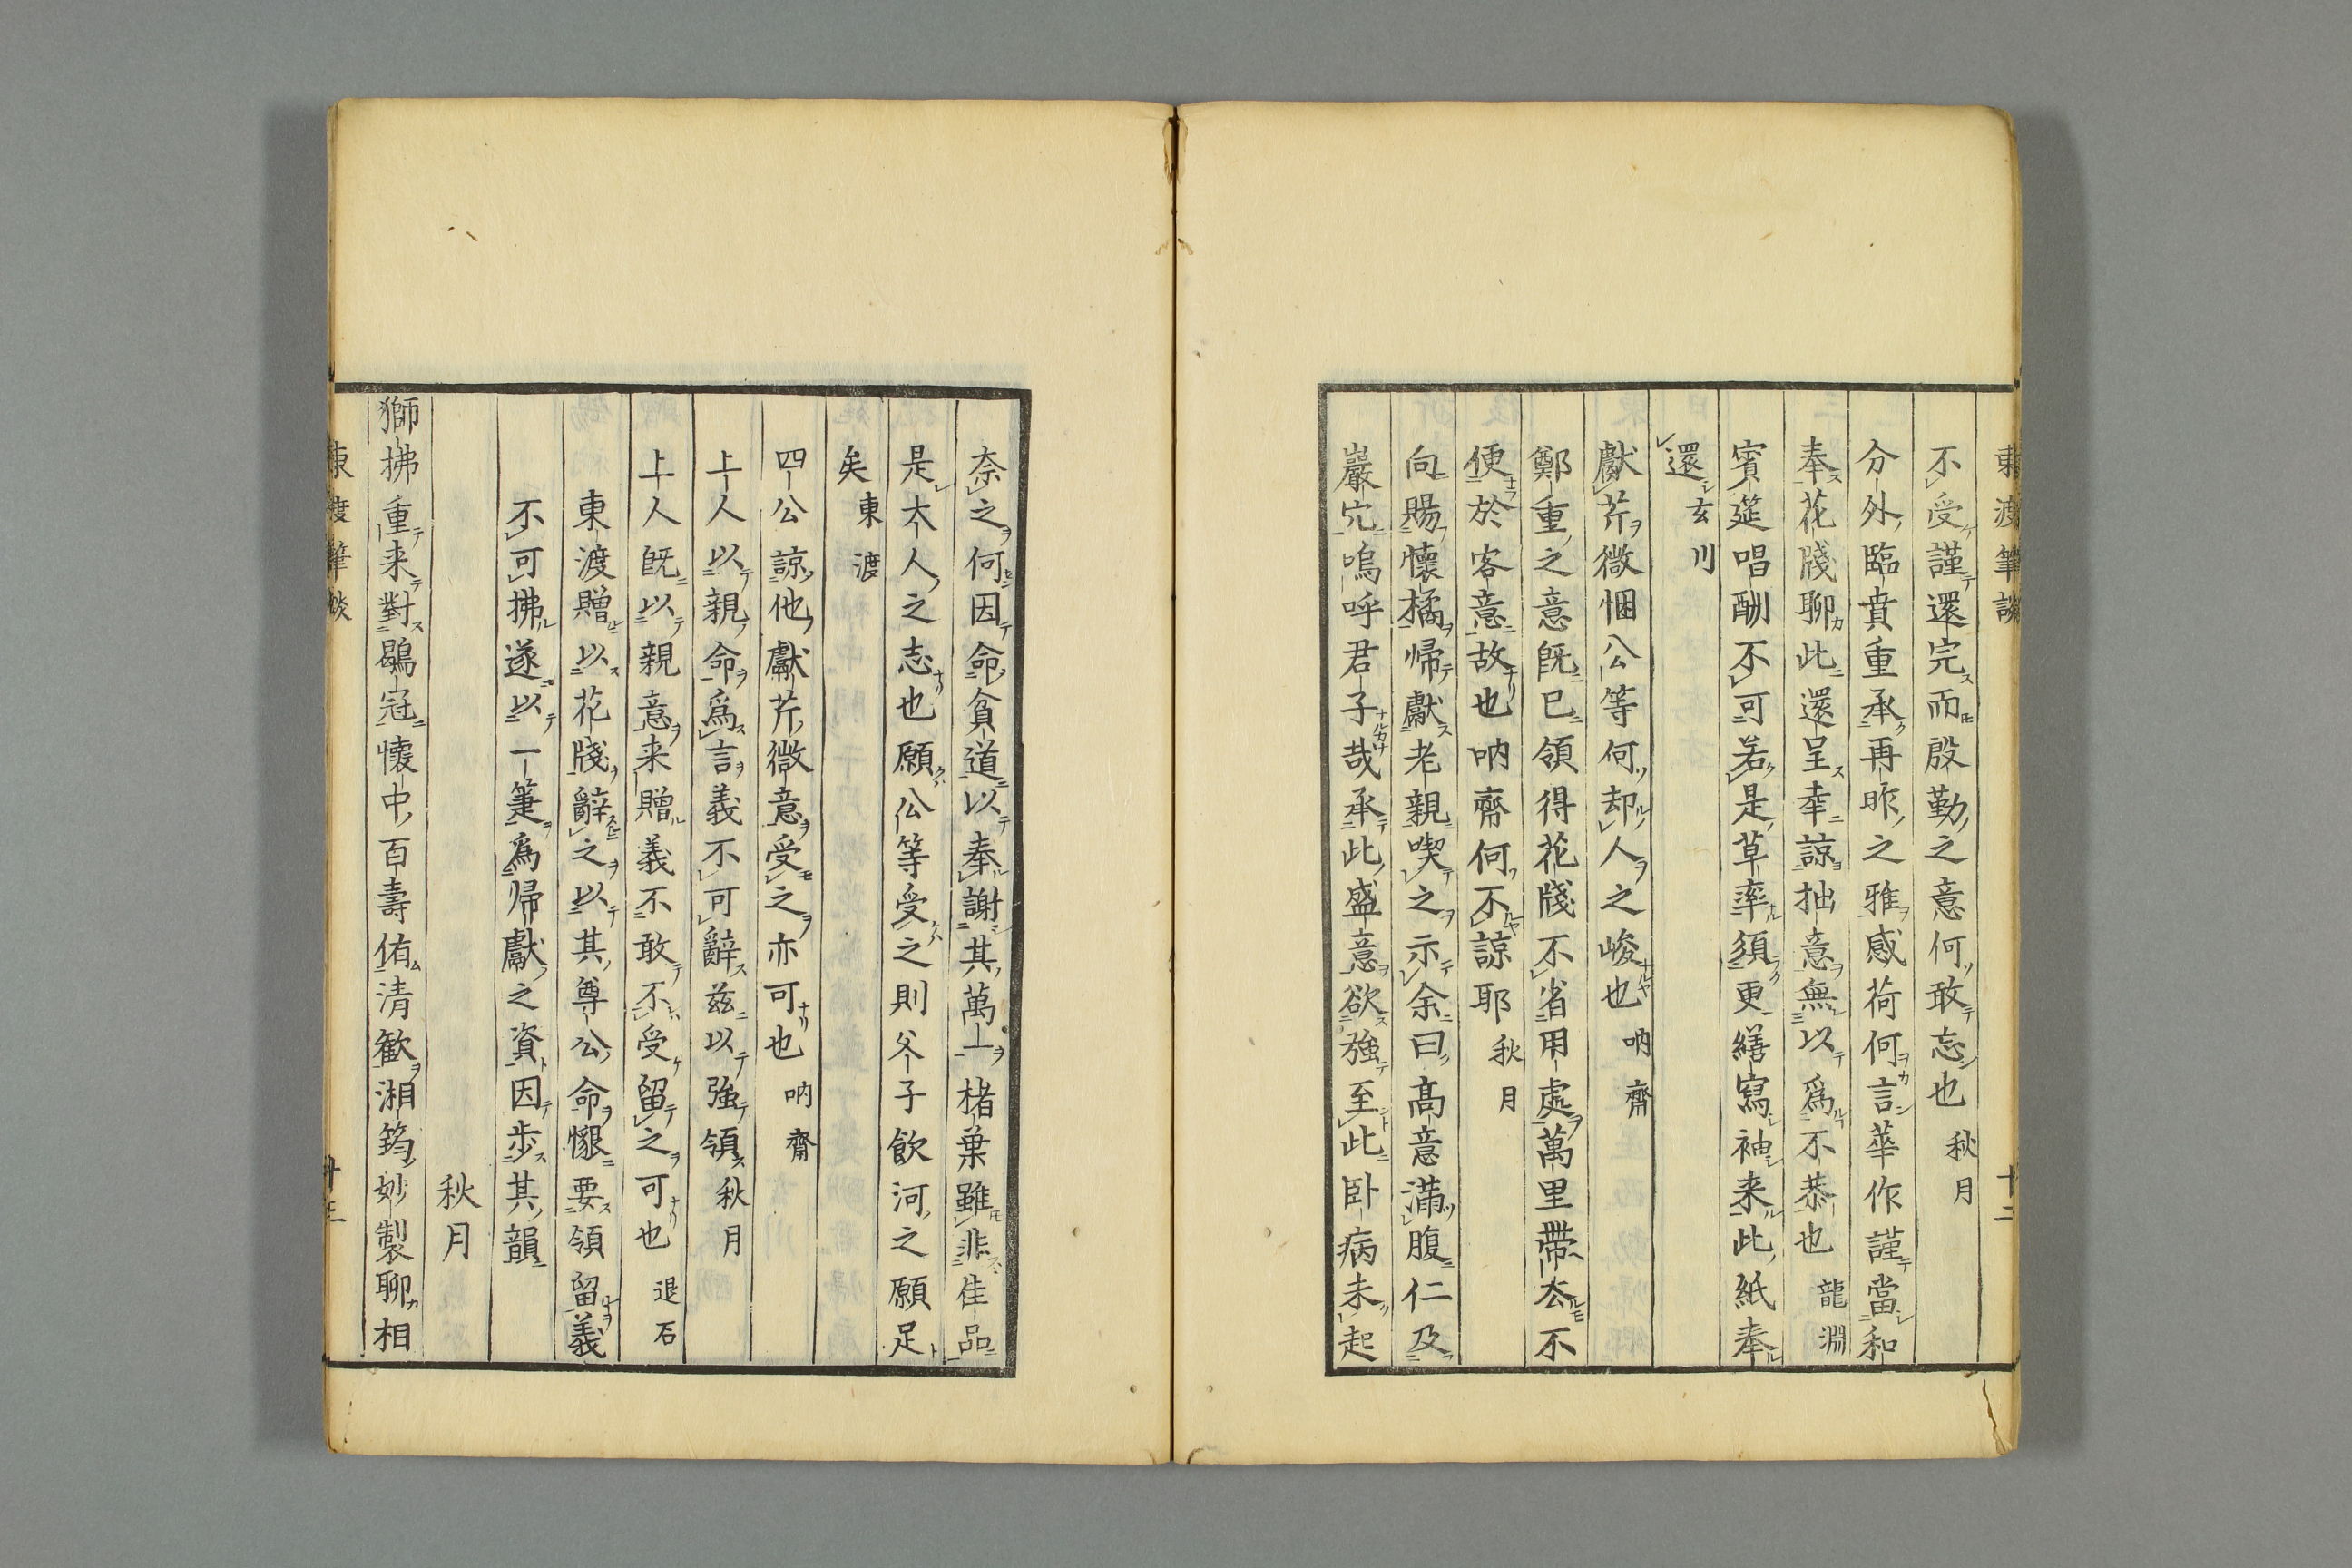 東渡筆談 十二
不受謹還完而殷勤之意何敢忘也 秋月
分外臨賁重承再昨之雅感荷何言華作謹當和
奉花牋聊此還呈幸諒拙意無以爲不恭也 龍淵
賓筵唱酬不可若是草率須更繕寫袖来此紙奉
還 玄川
獻芹微悃公等何却人之峻也 吶齋
鄭重之意既已領得花牋不省用處萬里帶去不
便於客意故也吶齋何不諒耶 秋月
向賜懷橘帰獻老親喫之示余曰髙意滿腹仁及
巖穴嗚呼君子哉承此盛意欲強至此卧病未起
奈之何因命貧道以奉謝其萬一楮葉雖非佳品
是大人之志也願公等受之則父子飲河之願足
矣 東渡
四公諒他獻芹微意受之亦可也 吶齋
上人以親命爲言義不可辭玆以強領 秋月
上人既以親意来贈義不敢不受留之可也 退石
東渡贈以花牋辭之以其尊公命懇要領留義
不可拂遂以一筆爲帰獻之資因步其韻
秋月
獅拂重来對鶡冠懷中百壽侑清歓湘筠妙製聊相
東渡筆談 十三